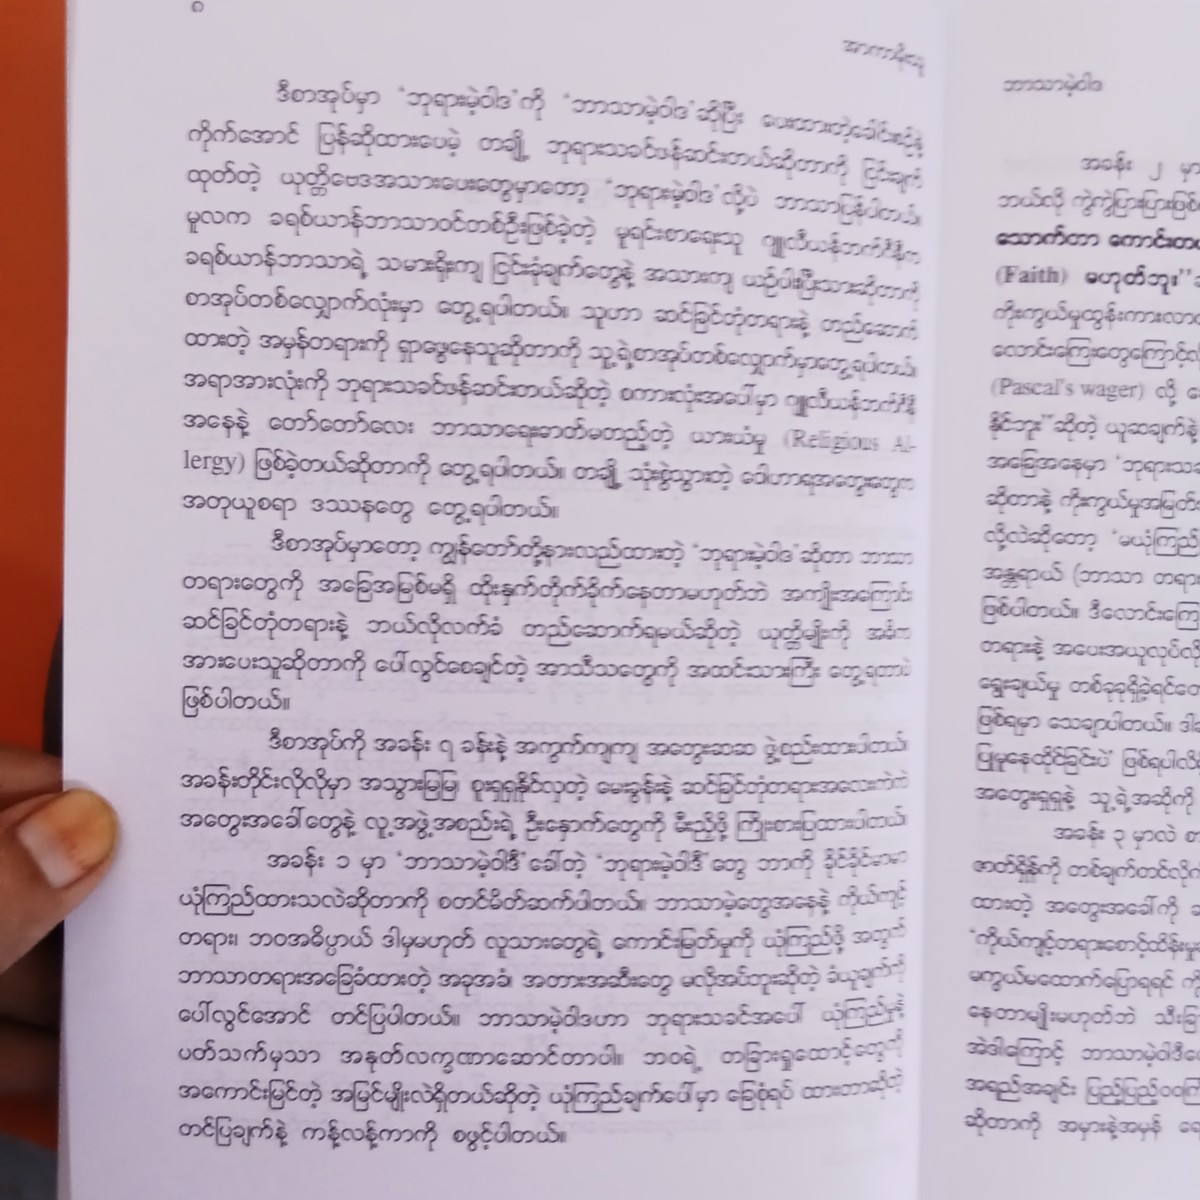 ၈
ဒီစာအုပ်မှာ ‘ဘုရားမဲ့ဝါဒ’ကို ‘ဘာသာမဲ့ဝါဒ’ဆိုပြီး ပေးထားတဲ့ခေါင်းစဉ်နဲ့
ကိုက်အောင် ပြန်ဆိုထားပေမဲ့ တချို့ ဘုရားသခင်ဖန်ဆင်းတယ်ဆိုတာကို ငြင်းချက်
ထုတ်တဲ့ ယုတ္တိဗေဒအသားပေးတွေမှာတော့ ‘ဘုရားမဲ့ဝါဒ’လို့ပဲ ဘာသာပြန်ပါတယ်။
မူလက ခရစ်ယာန်ဘာသာဝင်တစ်ဦးဖြစ်ခဲ့တဲ့ မူရင်းစာရေးသူ ဂျူလီယန်ဘက်ဂီနီက
ခရစ်ယာန်ဘာသာရဲ့ သမားရိုးကျ ငြင်းခုံချက်တွေနဲ့ အသားကျ ယဉ်ပါးပြီးသားဆိုတာကို
စာအုပ်တစ်လျှောက်လုံးမှာ တွေ့ရပါတယ်။ သူဟာ ဆင်ခြင်တုံတရားနဲ့ တည်ဆောက်
ထားတဲ့ အမှန်တရားကို ရှာဖွေနေသူဆိုတာကို သူ့ရဲ့စာအုပ်တစ်လျှောက်မှာတွေ့ရပါတယ်။
အရာအားလုံးကို ဘုရားသခင်ဖန်ဆင်းတယ်ဆိုတဲ့ စကားလုံးအပေါ်မှာ ဂျူလီယန်ဘက်ဂီနီ
အနေနဲ့ တော်တော်လေး ဘာသာရေးဓာတ်မတည့်တဲ့ ယားယံမှု (Religious Al-
lergy) ဖြစ်ခဲ့တယ်ဆိုတာကို တွေ့ရပါတယ်။ တချို့ သုံးစွဲသွားတဲ့ ဝေါဟာရအတွေးတွေက
အတုယူစရာ ဒဿနတွေ တွေ့ရပါတယ်။
ဒီစာအုပ်မှာတော့ ကျွန်တော်တို့နားလည်ထားတဲ့ ‘ဘုရားမဲ့ဝါဒ’ဆိုတာ ဘာသာ
တရားတွေကို အခြေအမြစ်မရှိ ထိုးနှက်တိုက်ခိုက်နေတာမဟုတ်ဘဲ အကျိုးအကြောင်း
ဆင်ခြင်တုံတရားနဲ့ ဘယ်လိုလက်ခံ တည်ဆောက်ရမယ်ဆိုတဲ့ ယုတ္တိမျိုးကို အဓိက
အားပေးသူဆိုတာကို ပေါ်လွင်စေချင်တဲ့ အာသီသတွေကို အထင်းသားကြီး တွေ့ရတာပဲ
ဖြစ်ပါတယ်။
ဒီစာအုပ်ကို အခန်း ၇ ခန်းနဲ့ အကွက်ကျကျ အတွေးဆဆ ဖွဲ့စည်းထားပါတယ်။
အခန်းတိုင်းလိုလိုမှာ အသွားမြမြ စူးရှရှနိုင်လှတဲ့ မေးခွန်းနဲ့ ဆင်ခြင်တုံတရားအလေးကဲကဲ
အတွေးအခေါ်တွေနဲ့ လူ့အဖွဲ့အစည်းရဲ့ ဦးနှောက်တွေကို မီးညှိဖို့ ကြိုးစားပြထားပါတယ်။
အခန်း ၁ မှာ ‘ဘာသာမဲ့ဝါဒီ’ခေါ်တဲ့ ‘ဘုရားမဲ့ဝါဒီ’တွေ ဘာကို ခိုင်ခိုင်မာမာ
ယုံကြည်ထားသလဲဆိုတာကို စတင်မိတ်ဆက်ပါတယ်။ ဘာသာမဲ့တွေအနေနဲ့ ကိုယ်ကျင့်
တရား၊ ဘဝအဓိပ္ပာယ် ဒါမှမဟုတ် လူသားတွေရဲ့ ကောင်းမြတ်မှုကို ယုံကြည်ဖို့ အတွက်
ဘာသာတရားအခြေခံထားတဲ့ အခုအခံ၊ အတားအဆီးတွေ မလိုအပ်ဘူးဆိုတဲ့ ခံယူချက်ကို
ပေါ်လွင်အောင် တင်ပြပါတယ်။ ဘာသာမဲ့ဝါဒဟာ ဘုရားသခင်အပေါ် ယုံကြည်မှုနဲ့
ပတ်သက်မှသာ အနုတ်လက္ခဏာဆောင်တာပါ။ ဘဝရဲ့ တခြားရှုထောင့်တွေကို
အကောင်းမြင်တဲ့ အမြင်မျိုးလဲရှိတယ်ဆိုတဲ့ ယုံကြည်ချက်ပေါ်မှာ ခြေစုံရပ် ထားတာဆိုတဲ့
တင်ပြချက်နဲ့ ကန့်လန့်ကာကို စဖွင့်ပါတယ်။
ဘာသာမဲ့ဝါဒ
အခန်း ၂ မှာ
ဘယ်လို ကွဲကွဲပြားပြားဖြစ်
သောက်တာ ကောင်းတ
(Faith) မဟုတ်ဘူး”
ကိုးကွယ်မှုထွန်းကားလာ
လောင်းကြေးတွေကြောင့်
(Pascal's wager) လို့
နိုင်ဘူး”ဆိုတဲ့ ယူဆချက်နဲ့
အခြေအနေမှာ ‘ဘုရားသခ
ဆိုတာနဲ့ ကိုးကွယ်မှုအမြတ်
လို့လဲဆိုတော့ ‘မယုံကြည်
အန္တရာယ် (ဘာသာ တရား
ဖြစ်ပါတယ်။ ဒီလောင်းကြေ
တရားနဲ့ အပေးအယူလုပ်
ရွေးချယ်မှု တစ်ခုခုရှိခဲ့ရင်
ဖြစ်ရမှာ သေချာပါတယ်။
ပြုမူနေထိုင်ခြင်းပဲ’ ဖြစ်ရပါ
အတွေးရှုရှုနဲ့ သူ့ရဲ့အဆိုကို
အခန်း ၃ မှာလဲ
ဇာတ်ရှိန်ကို တစ်ချက်တင်
ထားတဲ့ အတွေးအခေါ်ကို
‘ကိုယ်ကျင့်တရားစောင့်ထိန်းမှု
မကွယ်မထောက်ပြောရရင်
နေတာမျိုးမဟုတ်ဘဲ သီးခြ
အဲဒါကြောင့် ဘာသာမဲ့ဝါဒီ
အရည်အချင်း ပြည့်ပြည့်ဝဝ
ဆိုတာကို အမှားနဲ့အမှန်